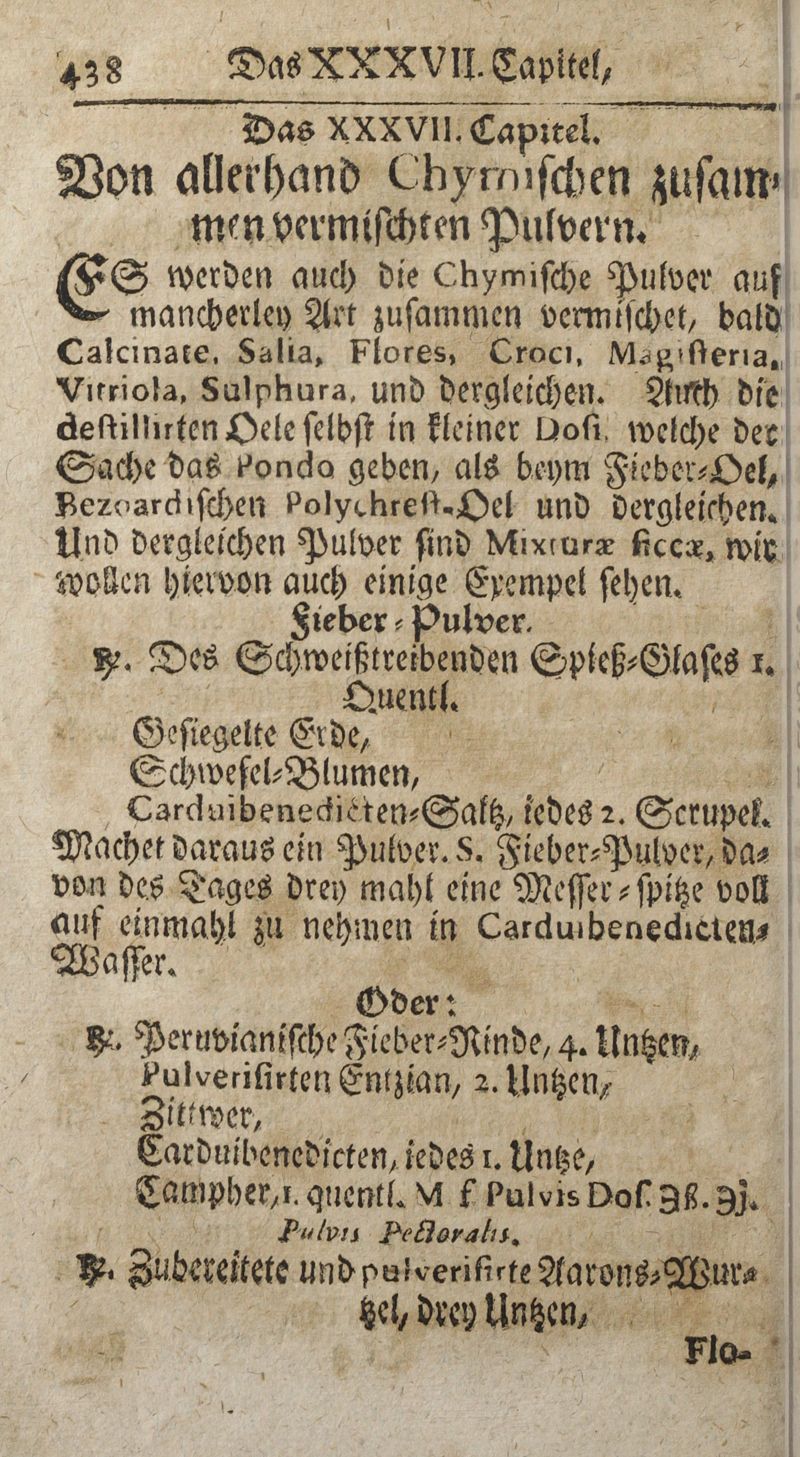 438 Das XXXVII. Capitel,
Das XXXVII. Capitel.
Von allerhand Chymischen zusam-
men vermischten Pulvern.
ES werden auch die Chymische Pulver auf
mancherley Art zusammen vermischet, bald
Calcinate, Salia, Flores, Croci, Magisteria,
Vitriola, Sulphura, und dergleichen. Auch die
destillirten Oele selbst in kleiner Dosi, welche der
Sache das Pondo geben, als beym Fieber-Oel,
Bezoardischen Polychrest-Oel und dergleichen.
Und dergleichen Pulver sind Mixturæ siccæ, wir
wollen hiervon auch einige Exempel sehen.
Fieber-Pulver.
℞. Des Schweißtreibenden Spieß-Glases 1.
Quentl.
Gesiegelte Erde,
Schwefel-Blumen,
Carduibenedicten-Saltz, iedes 2. Scrupel.
Machet daraus ein Pulver. S. Fieber-Pulver, da-
von des Tages drey mahl eine Messer-spitze voll
auf einmahl zu nehmen in Carduibenedicten-
Wasser.
Oder:
℞. Peruvianische Fieber-Rinde, 4. Untzen,
Pulverisirten Entzian, 2. Untzen,
Zittwer,
Carduibenedicten, iedes 1. Untze,
Campher, 1. quentl. M f Pulvis Dos. ℈ß. ℈j.
Pulvis Pectoralis.
℞. Zubereitete und pulverisirte Aarons-Wur-
tzel, drey Untzen,
Flo-